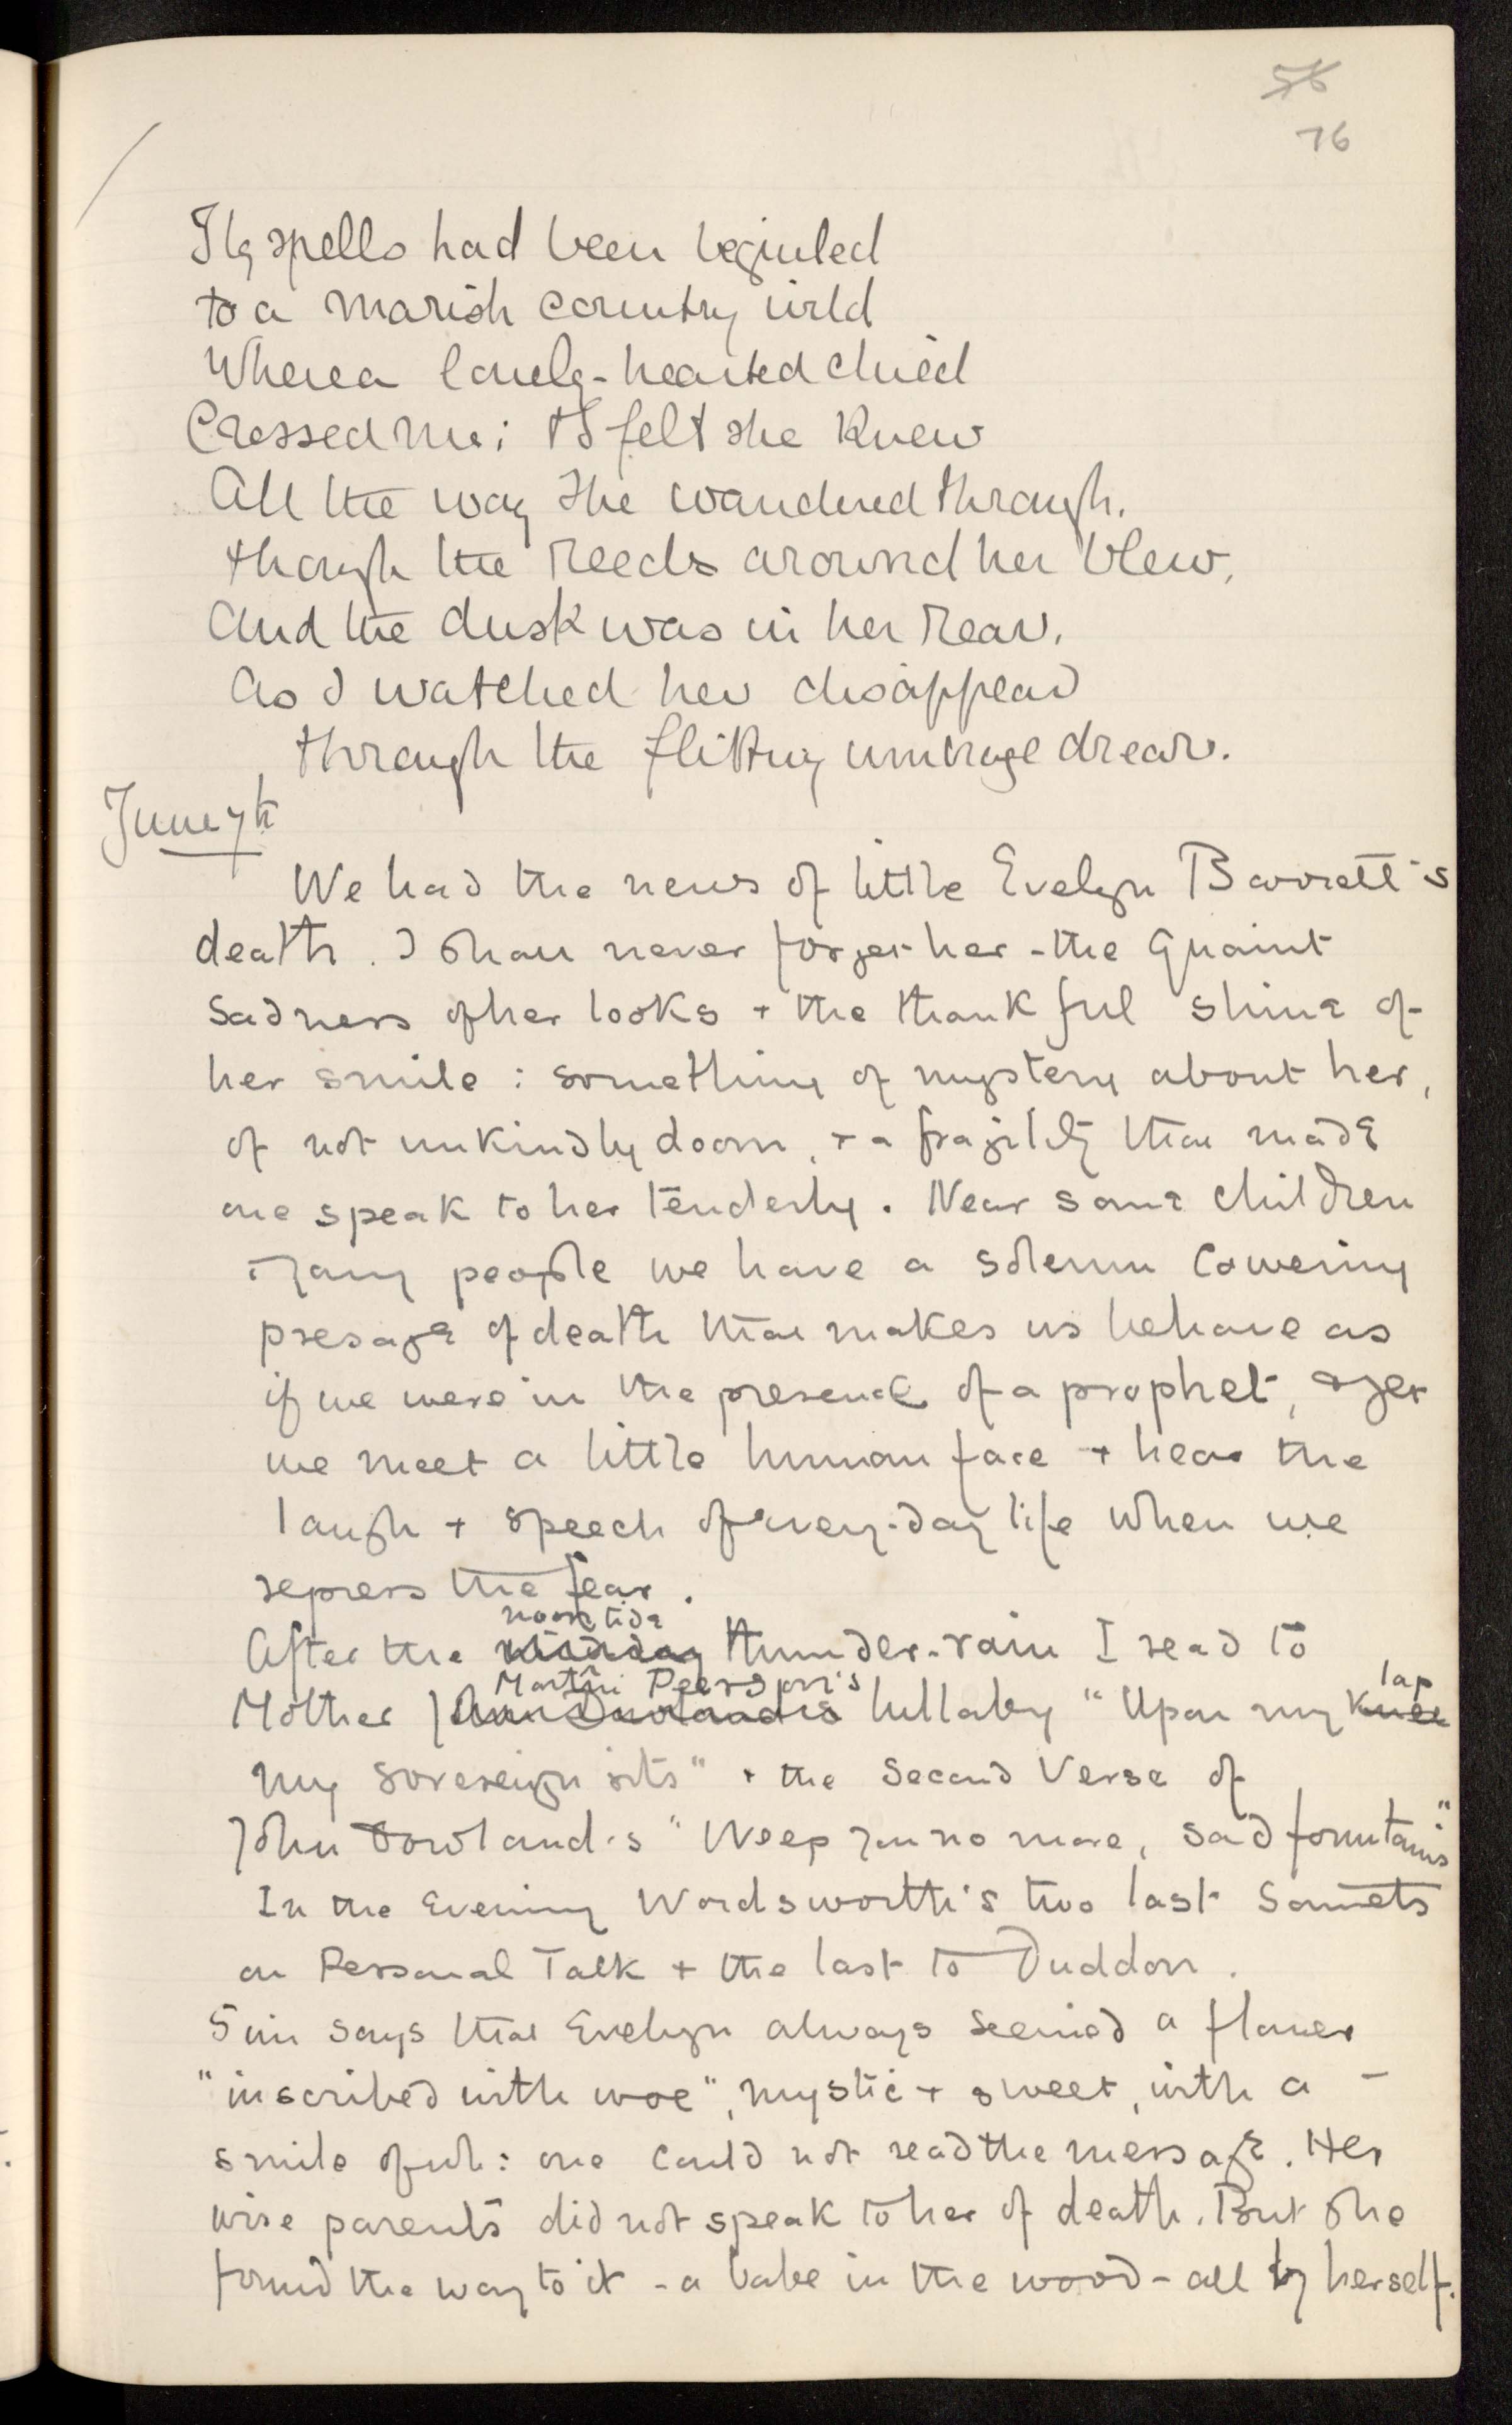 56
76
I by spells had been beguiled
to a marish country wild
Where a lonely-hearted child
Crossed me; & I felt she knew
All the way she wandered through,
though the reeds around her blew,
And the dusk was in her rear,
As I watched her disappear
through the flitting umbrage drear.
June 7th
We had the news of little Evelyn Barrett's
death. I shall never forget her - the quaint
sadness of her looks + the thankful shine of
her smile: something of mystery about her,
of not unkindly doom, + a fragility that made
one speak to her tenderly. Near some children
many people we have a solemn cowering
presage of death that makes us behave as
if we were in the presence of a prophet, & yet
we meet a little human face + hear the
laugh + speech of every-day life when we
repress the fear.
noontide
After the midday thunder-rain I read to
Martin Peerson's lap
Mother John Dowland's lullaby "Upon my knee
my sovereign sits" + the second verse of
John Dowland's "Weep you no more, sad fountains"
In the Evening Wordsworth's two last Sonnets
on Personal Talk + the last to Duddon.
Sim says that Evelyn always seemed a flower
"inscribed with woe", mystic + sweet, with a -
smile of wh: one could not read the message. Her
wise parents did not speak to her of death. But she
found the way to it - a babe in the wood - all by herself.